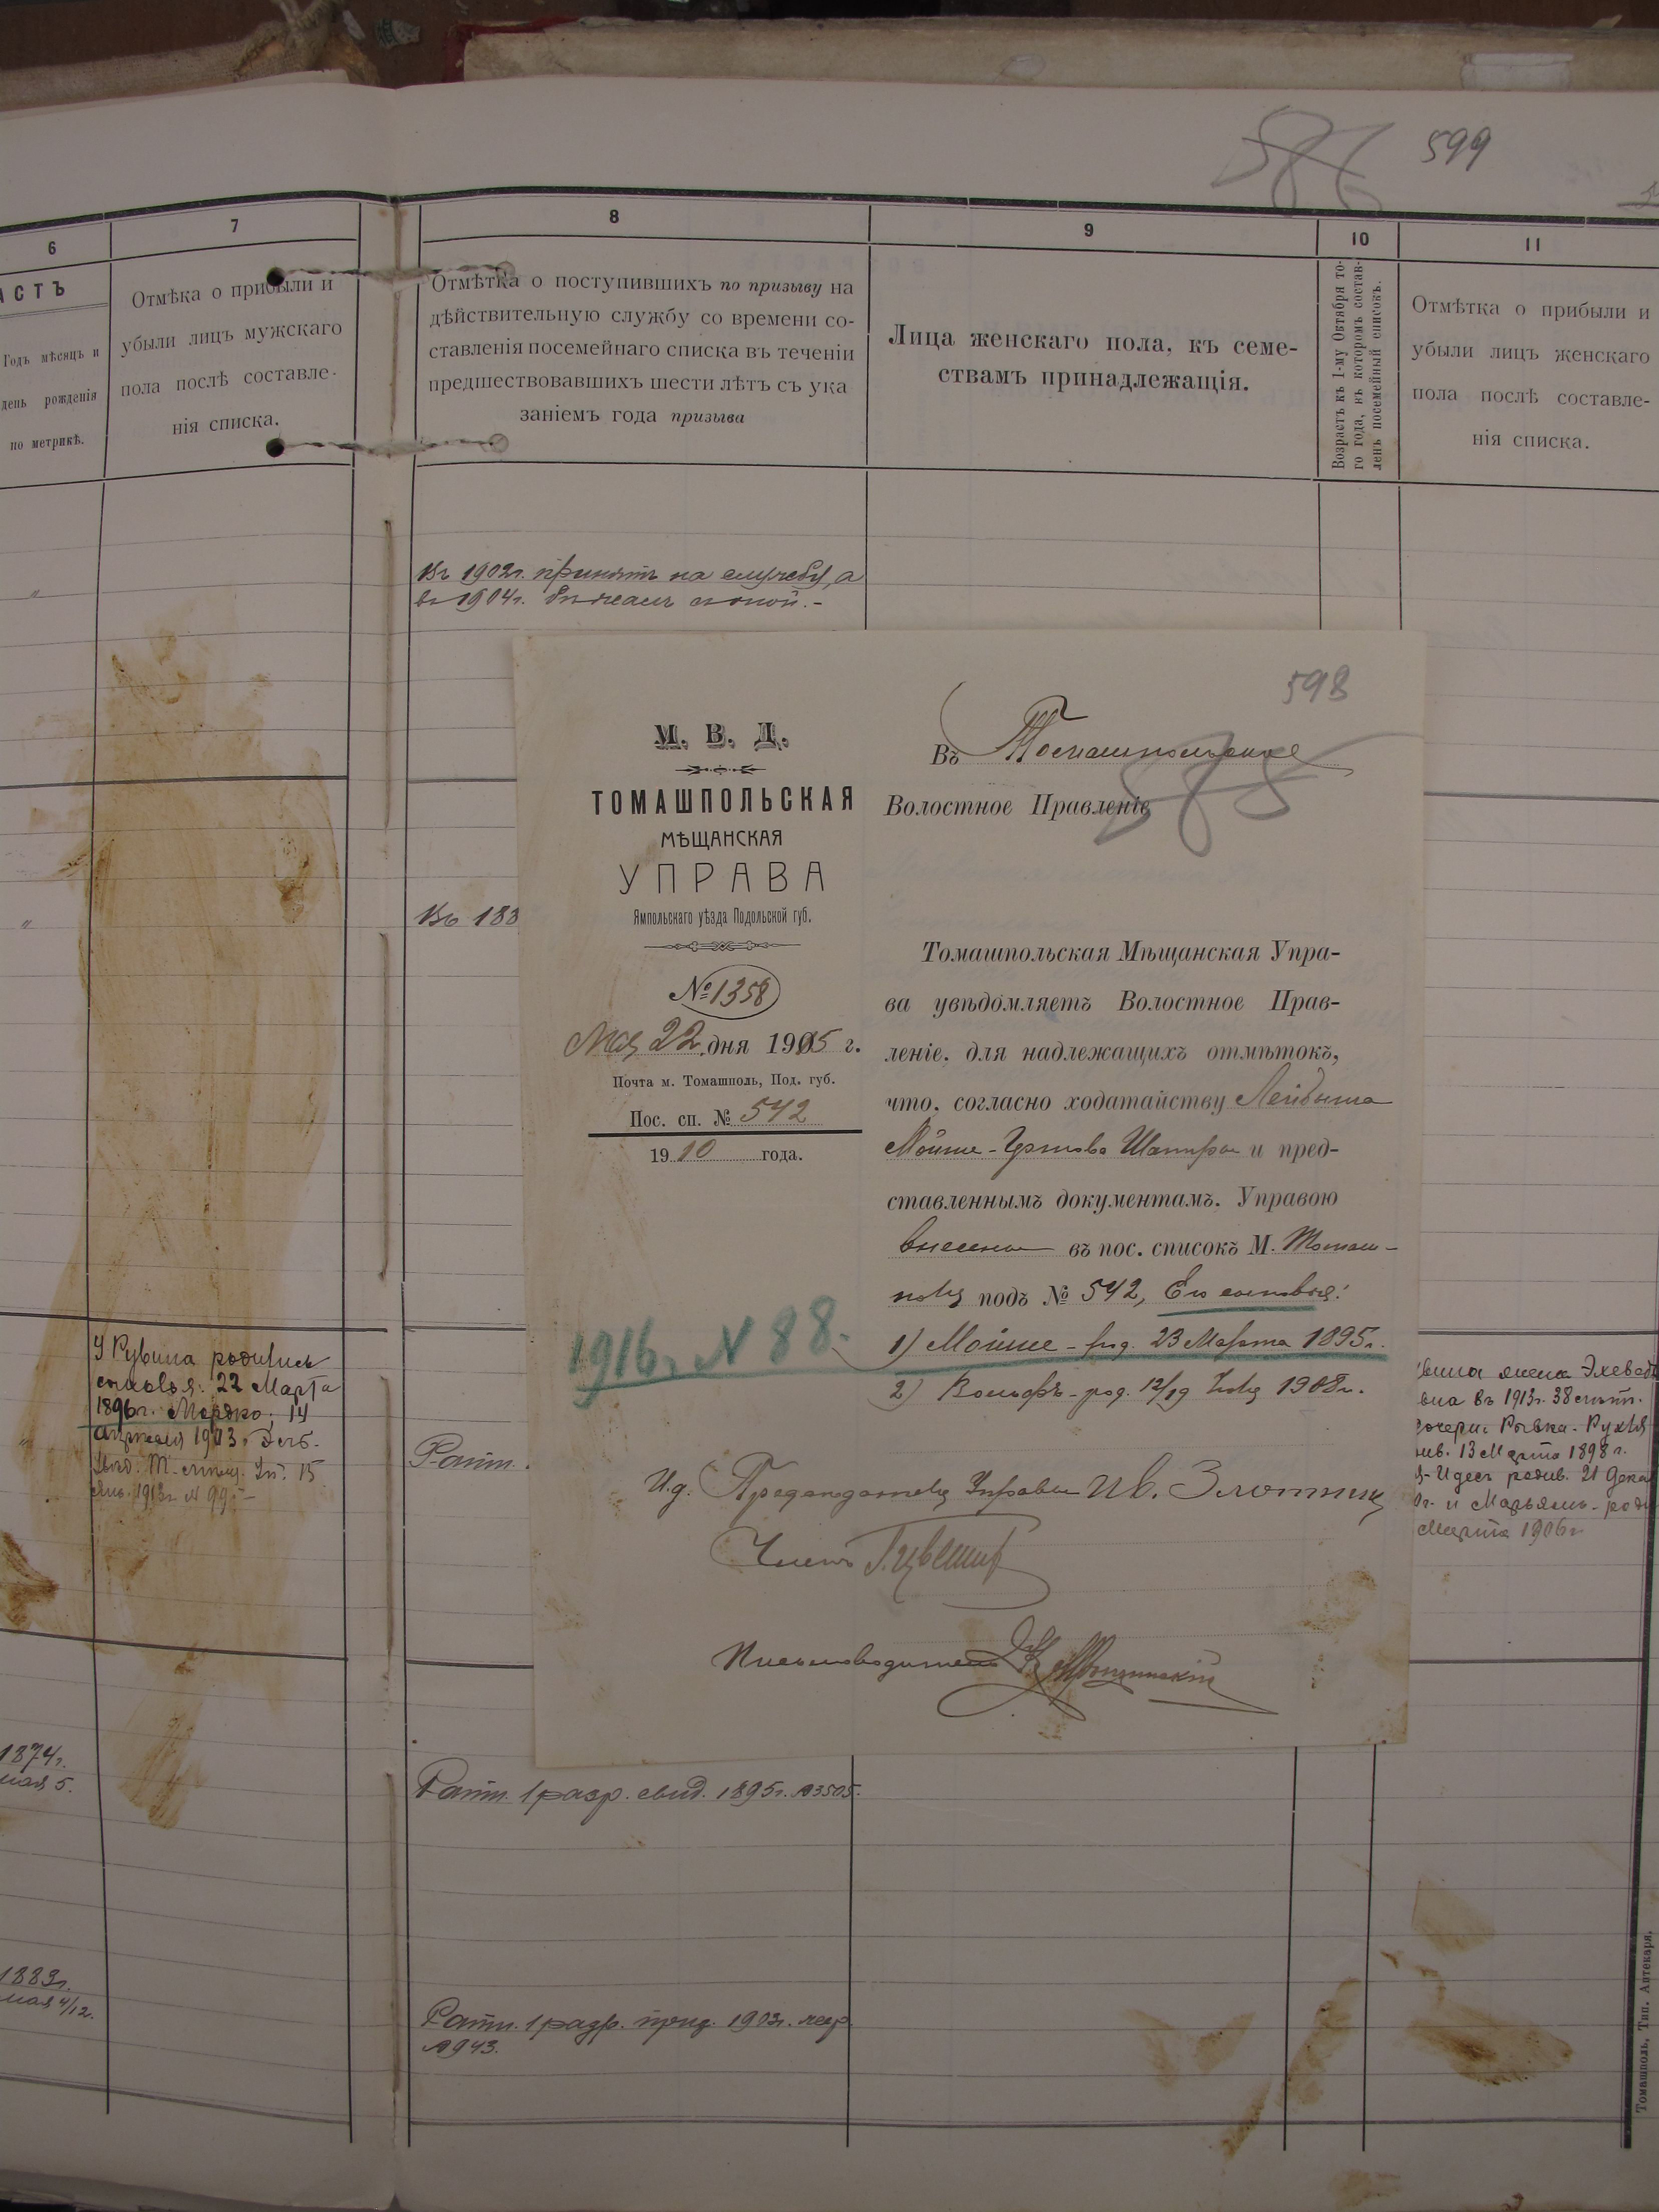 586 599
6
7
8
9
10
11
АСТЪ
Годъ мѣсяцъ и
день рожденія
по метрикѣ.
Отмѣка о прибыли и
убыли лицъ мужскаго
пола послѣ составле-
нія списка.
Отмѣтка о поступившихъ по призыву на
дѣйствительную службу со времени со-
ставленія посемейнаго списка въ теченіи
предшествовавшихъ шести лѣтъ съ ука
заніемъ года призыва
Лица женскаго пола, къ семе-
ствамъ принадлежащія.
Возрастъ къ 1-му Октября то-
го года, въ которомъ состав-
ленъ посемейный списокъ.
Отмѣтка о прибыли и
убыли лицъ женскаго
пола послѣ составле-
нія списка.
Въ 1902г. принятъ на службу, а
въ 1904г.
Въ 188
У Рувина родились
сыновья: 22 Марта
1896г. Мордко, 14
Апреля 1903г.
15
1913г. N 99.-
Ратн.
1874г.
мая 5.
Ратн. 1 разр. свид. 1895г. №3505.
1883г.
мая 4/12.
Ратн. 1 разр. 1903г.
№943.
жена
въ 1913г. 38 лѣтъ.
Рывка-Рухля
13 Марта 1898г.
Идесъ родив. 21 Дека
г. и Марьямъ-роди
Марта 1906г.
Томашполь, Тип. Аптекаря.
598
М. В. Д.
ТОМАШПОЛЬСКАЯ
МѢЩАНСКАЯ
УПРАВА
Ямпольскаго уѣзда Подольской губ.
№1358
Мая 22 дня 1915 г.
Почта м. Томашполь, Под. губ.
Пос. сп. № 542
1910 года.
Въ Томашпольское
Волостное Правленіе
585
Томашпольская Мѣщанская Упра-
ва увѣдомляетъ Волостное Прав-
леніе, для надлежащихъ отмѣтокъ,
что, согласно ходатайству Лейбыша
Мойше-Шапиро и пред-
ставленнымъ документамъ, Управою
внесены въ пос. списокъ М. Томаш-
поля подъ № 542, Его сыновья:
1) Мойше - род. 23 Марта 1895г.
2) Вольфъ - род. 12/19 1908г.
1916г. N 88.
И.д. Предсѣдателя Управы Ив. Злотник
Членъ
Письмоводитель